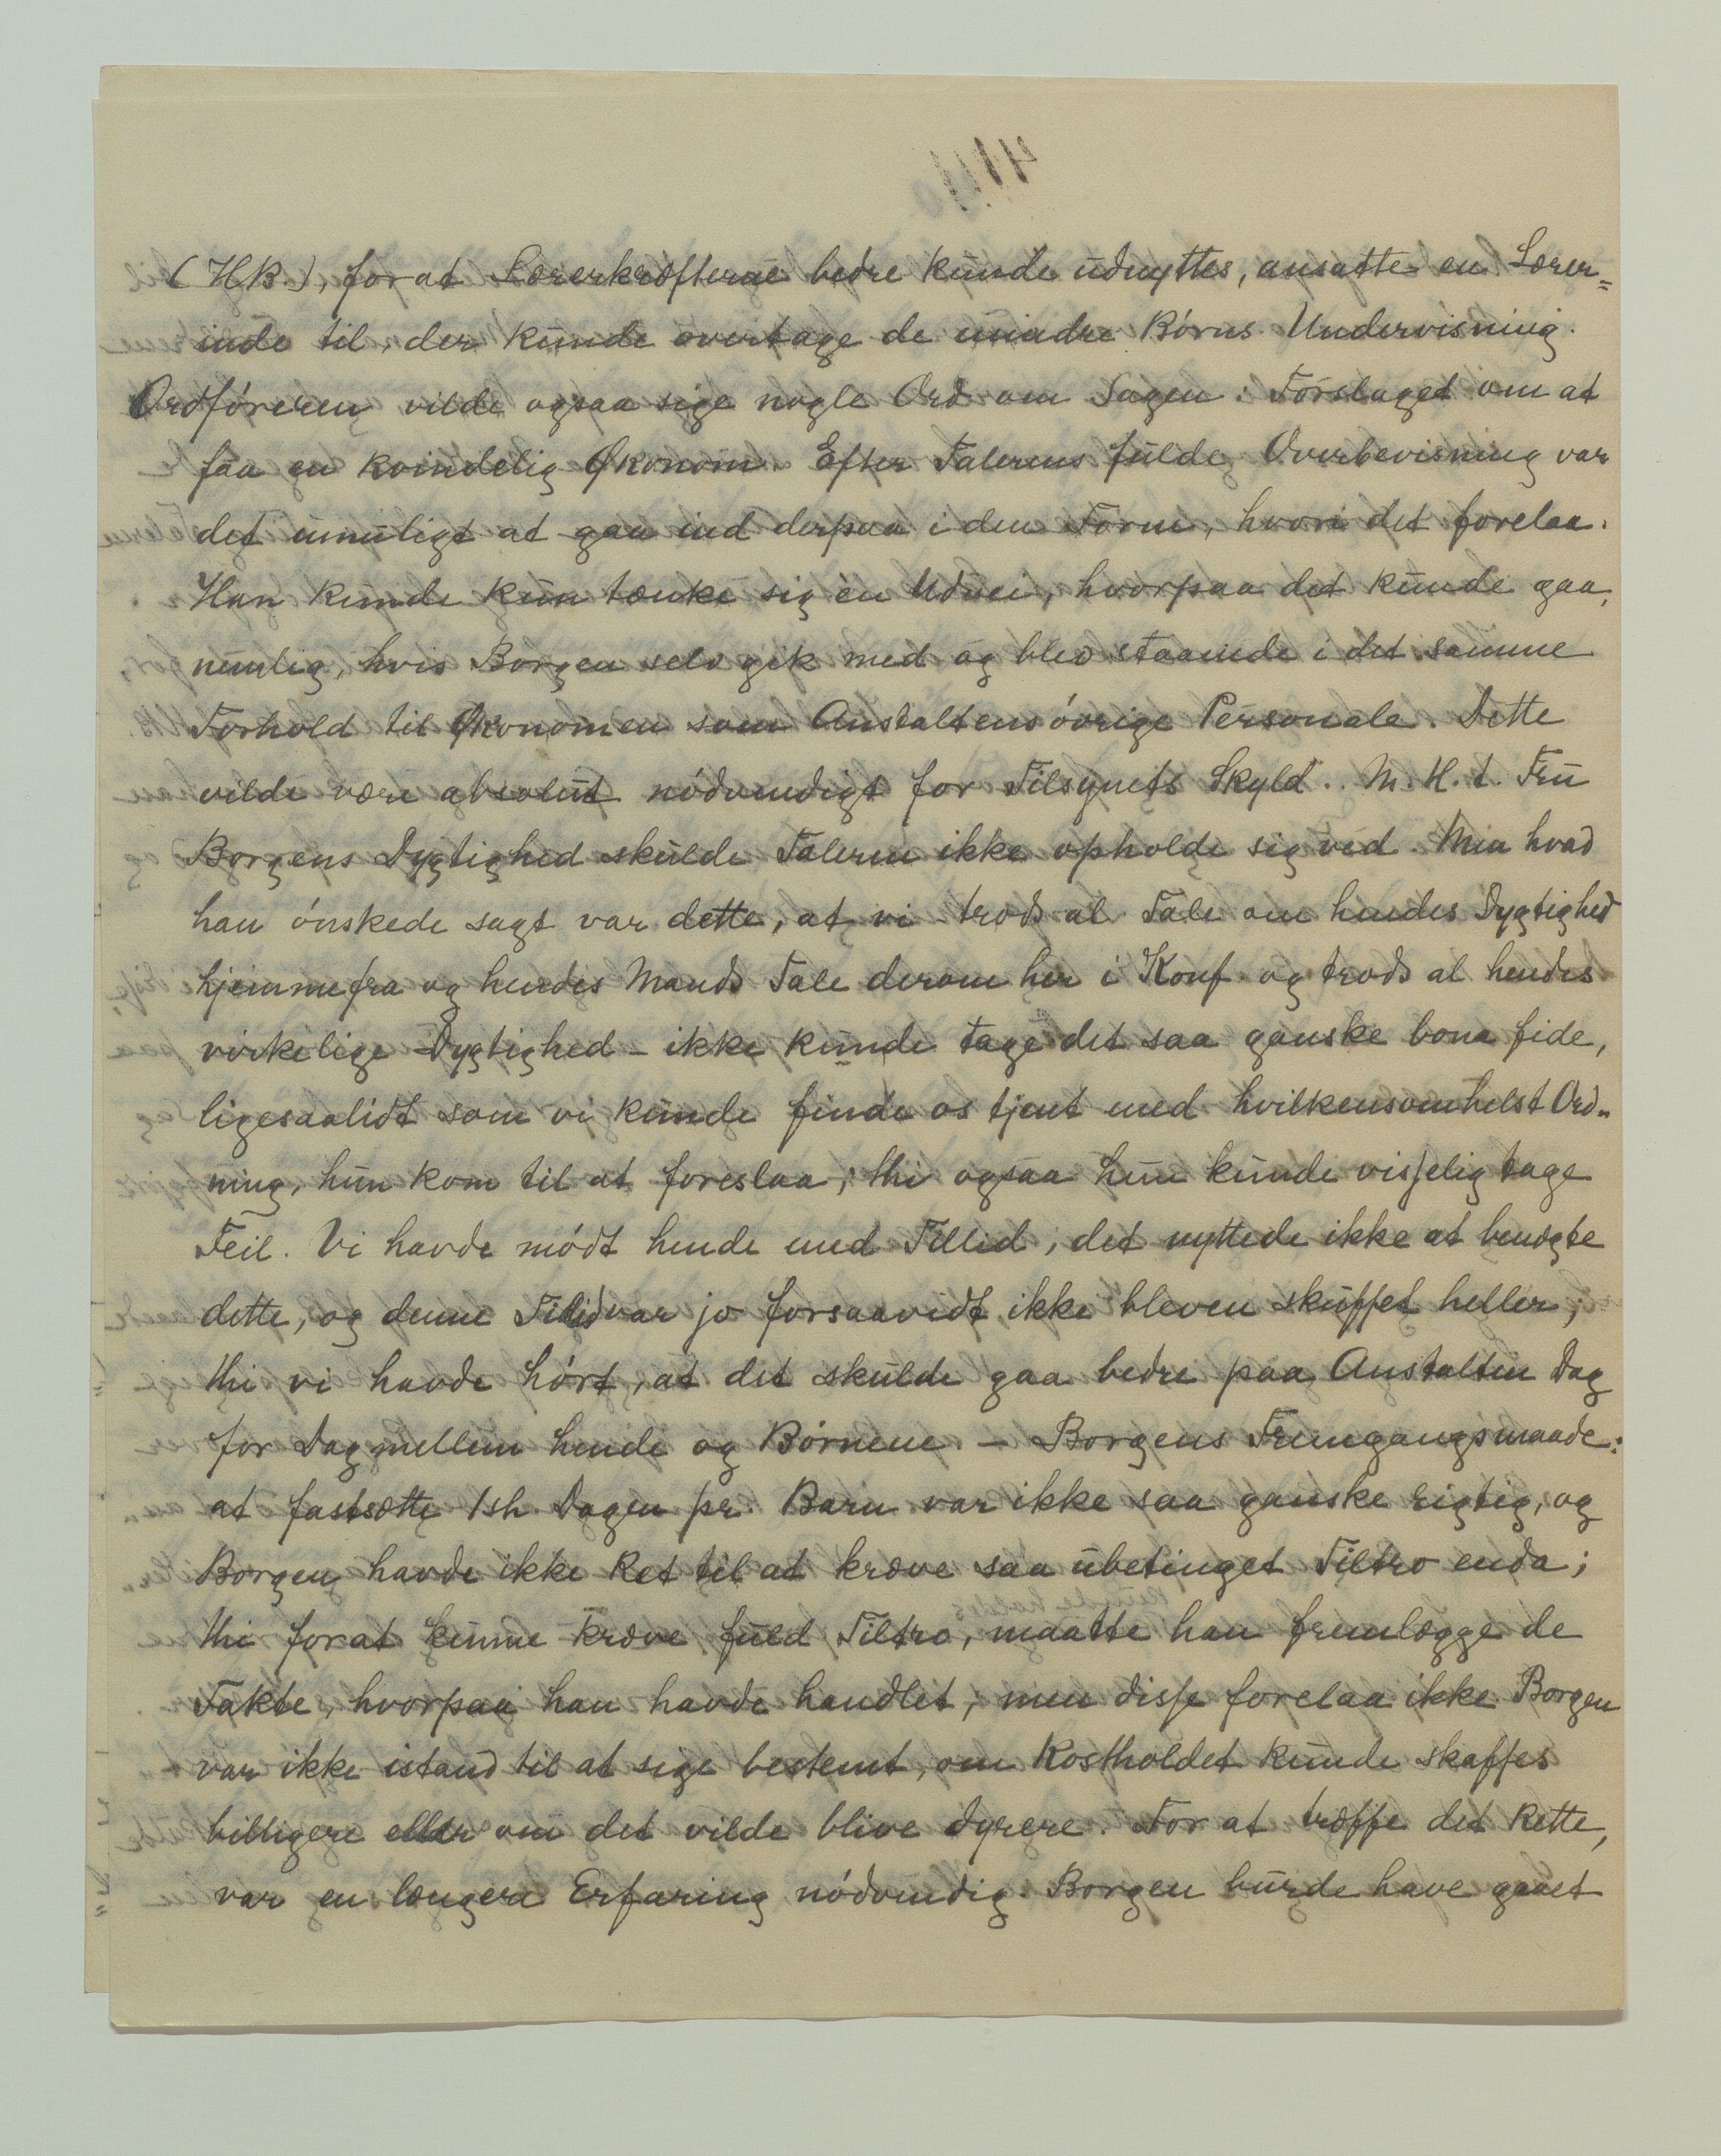 (HB), forat Lærerkræfterne bedre kunde udnyttes, ansatte en Lærer=
inde til, der kunde overtage de mindre Börns Undervisning.
Ordföreren vilde ogsaa sige nogle Ord om Sagen: Forslaget om at
faa en kvindelig Økonom. Efter Talerens fulde Overbevisning var
det umuligt at gaa ind derpaa i den Form, hvori det forelaa.
Han kunde kun tænke sig én Udvei, hvorpaa det kunde gaa,
nemlig, hvis Borgen selv gik med og blev staaende i det samme
Forhold til Økonomen som Anstaltens övrige Personale. Dette
vilde være absolut nödvendigt for Tilsynets Skyld. M. H. t. Fru
Borgens Dygtighed skulde Taleren ikke opholde sig ved. Men hvad
han önskede sagt var dette, at vi trods al Tale om hendes Dygtighed
hjemmefra og hendes Mands Tale derom her i Konf. og trods al hendes
virkelige Dygtighed - ikke kunde tage det saa ganske bona fide,
ligesaalidt som vi kunde finde os tjent med hvilkensomhelst Ord„
ning, hun kom til at foreslaa; thi ogsaa hun kunde visselig tage
Feil. Vi havde mödt hende med Tillid, det nyttede ikke at benægte
dette, og denne Tillid var jo forsaavidt ikke bleven skuffet heller;
thi vi havde hört, at det skulde gaa bedre paa Anstalten Dag
for Dag mellem hende og Börnene. - Borgens Fremgangsmaade:
at fastsætte 1sh Dagen pr. Barn var ikke saa ganske rigtig, og
Borgen havde ikke Ret til at kræve saa ubetinget Tiltro enda;
thi forat kunne kræve fuld Tiltro, maatte han fremlægge de
Fakte, hvorpaa han havde handlet; men disse forelaa ikke. Borgen
var ikke istand til at sige bestemt, om Kostholdet kunde skaffes
billigere eller om det vilde blive dyrere. For at træffe det Rette,
var en længere Erfaring nödvendig. Borgen burde have gaaet